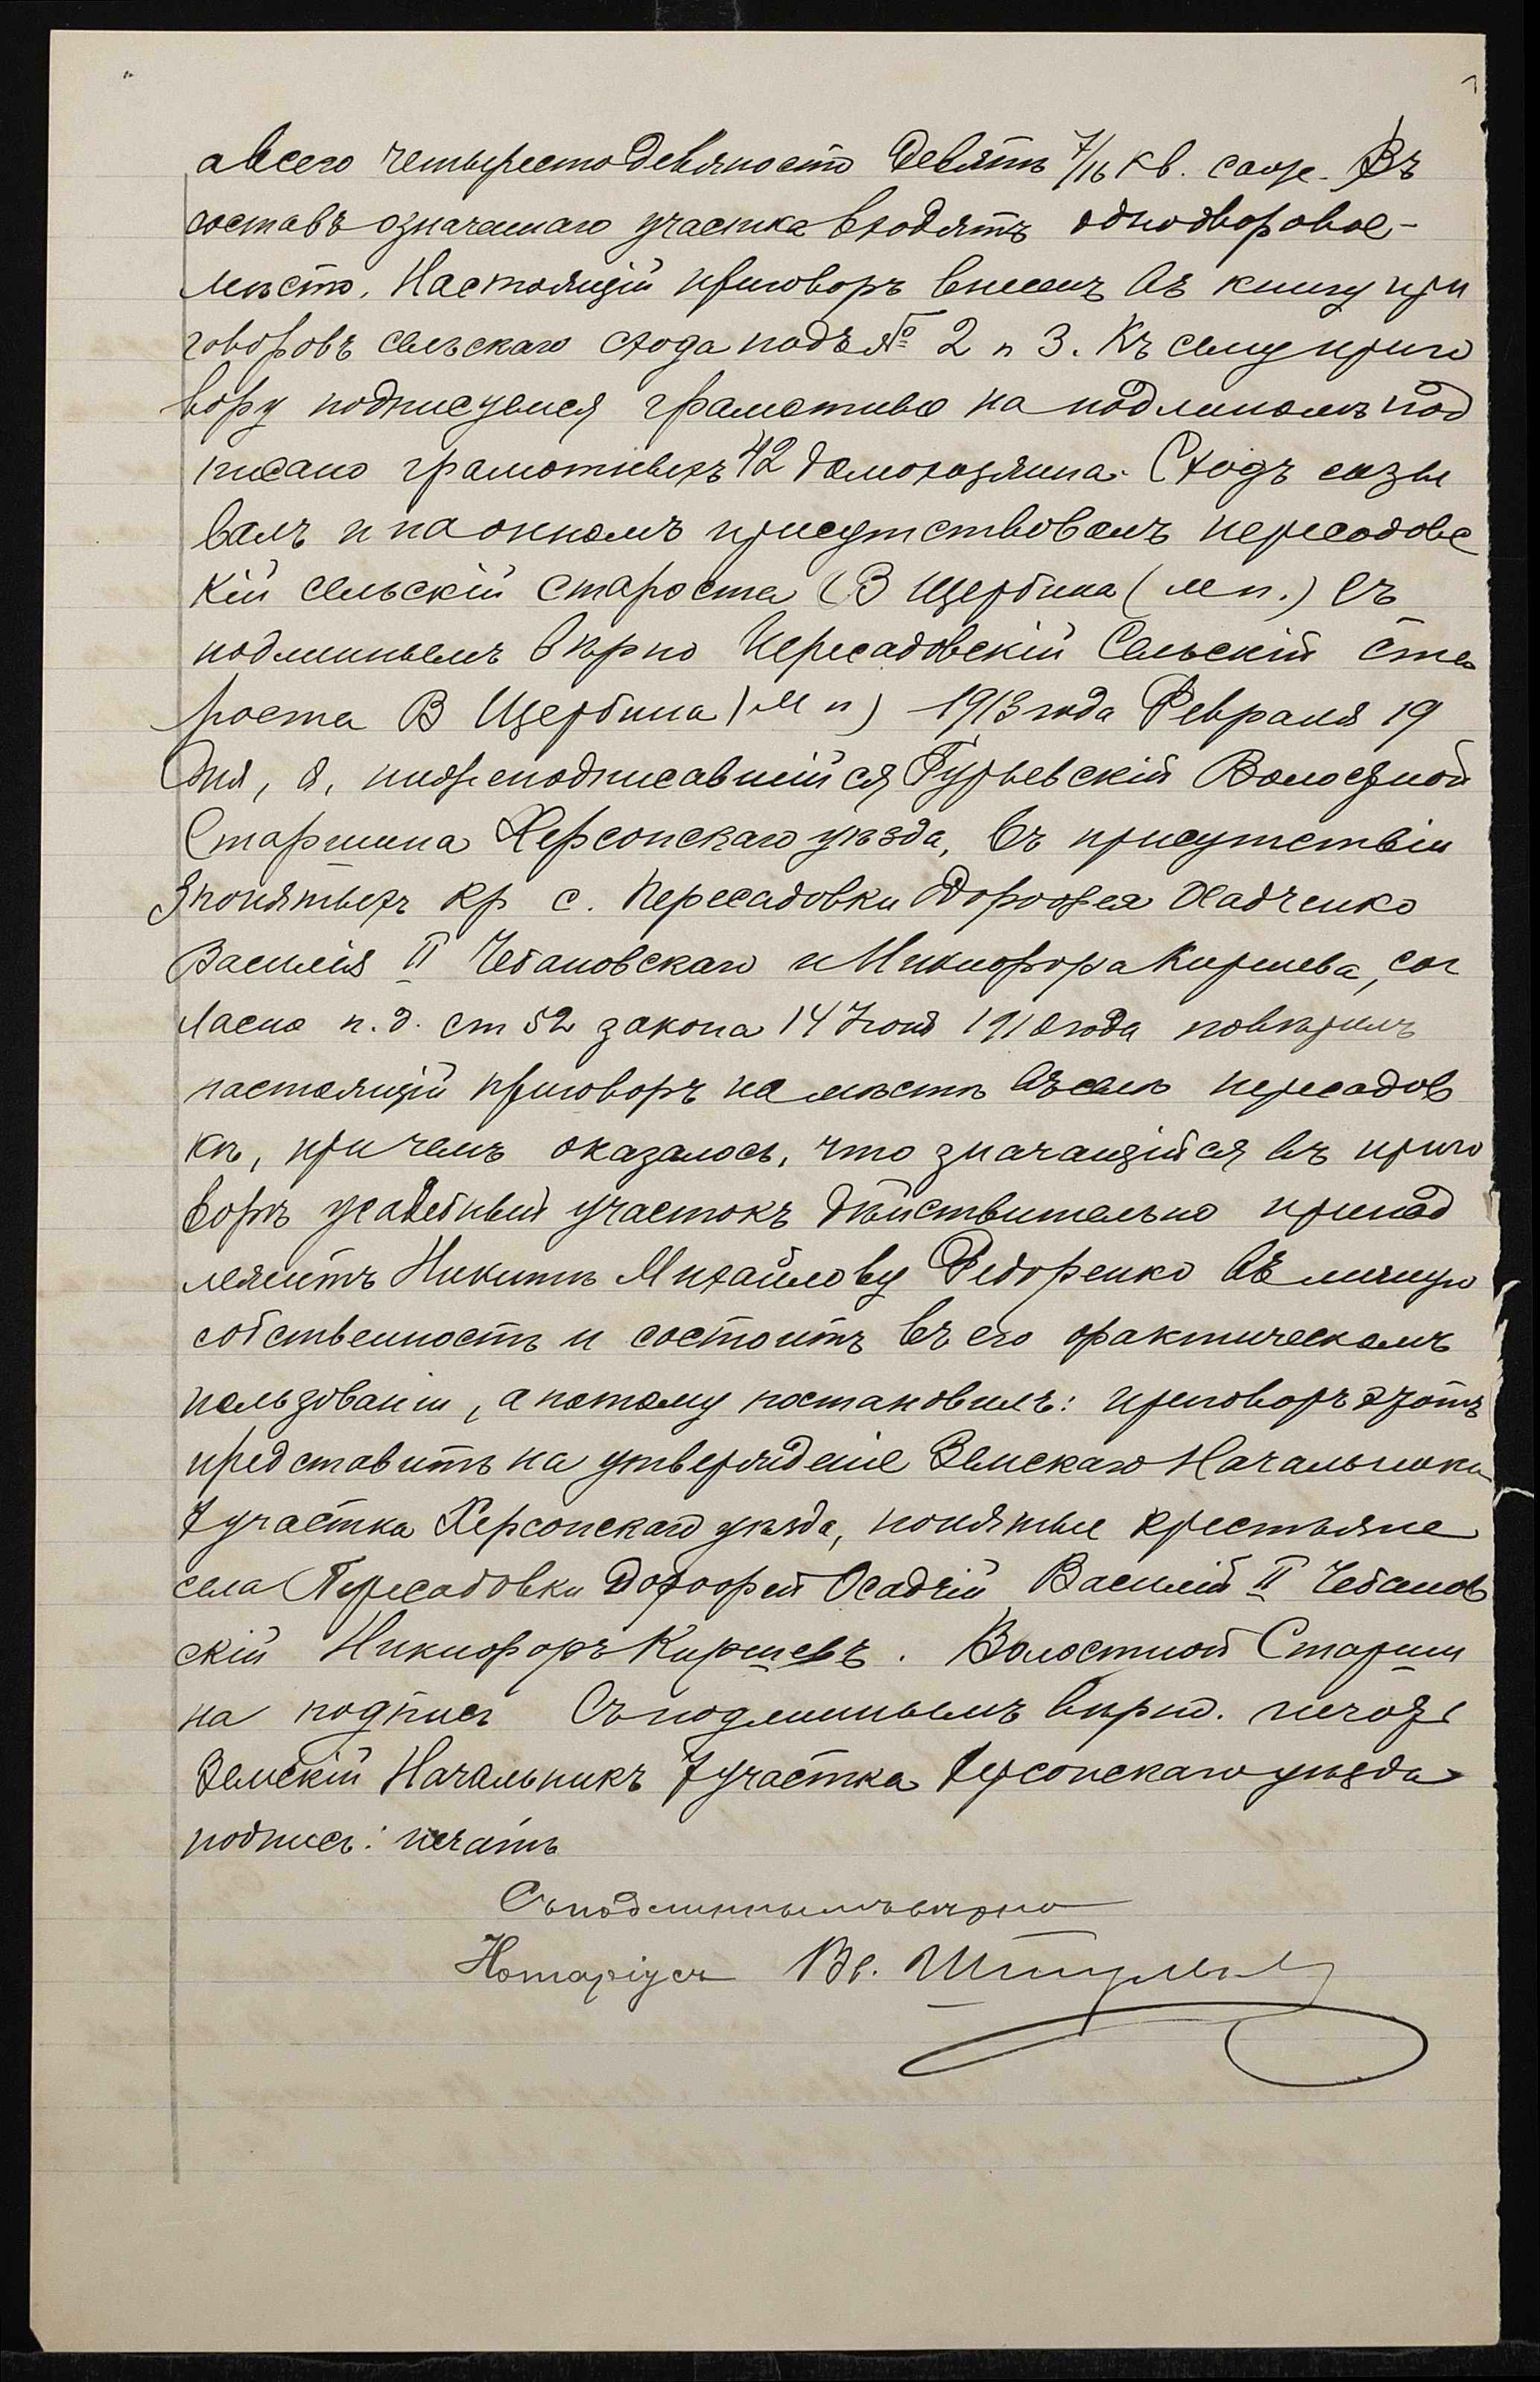 а всего четыреста девяносто девять 7/16 кв. саж. Въ
составъ означенаго участка входятъ однодворовое-
мѣсто. Настоящій приговоръ внесенъ въ книгу при
говоровъ сельскаго схода подъ № 2 п 3. Къ сему приго
вору подписуемся грамотные на подлиномъ под
писано грамотныхъ 42 домохозяина. Сходъ созы
валъ и на ономъ присутствовалъ пересадовс
кій сельскій староста (В Щербина (м п.) Съ
подлиннымъ вѣрно Пересадовскій Сельскій ста
роста В Щербина (м п) 1913 года Февраля 19
Дня, я, нижеподписавшійся Гурьевскій Волосной
Старшина Херсонскаго уѣзда, въ присутствіи
3 понятыхъ кр с. Пересадовки Дорофея Осадченко
Василія II Чебановскаго и Никифора Киршева, сог
ласно п. д. ст 52 закона 14 Іюня 1910 года повѣрилъ
настоящій приговоръ на мѣстѣ въ селѣ пересадов
кѣ, при чемъ оказалось, что значащійся въ приго
ворѣ усадебный участокъ дѣйствительно принад
лежитъ Никитѣ Михайлову Федоренко въ личную
собственность и состоитъ въ его фактическомъ
пользованіи, а потому постановилъ: приговоръ этотъ
представить на утвержденіе Земскаго Начальника
7 участка Херсонскаго уѣзда, понятые крестьяне
села Пересадовки Дорофей Осадчій Василій II Чебанов
скій Никифоръ Киршевъ. Волостной Старши
на подпись Съ подлиннымъ вѣрно.
Земскій Начальникъ 7 участка Херсонскаго уѣзда
подпись: печать
Съ подлиннымъ вѣрно
Нотаріусъ Вл.